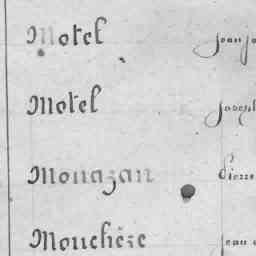 Motel Jean
Motel Joseph
Monazan Pierre
Mouchèze Jean